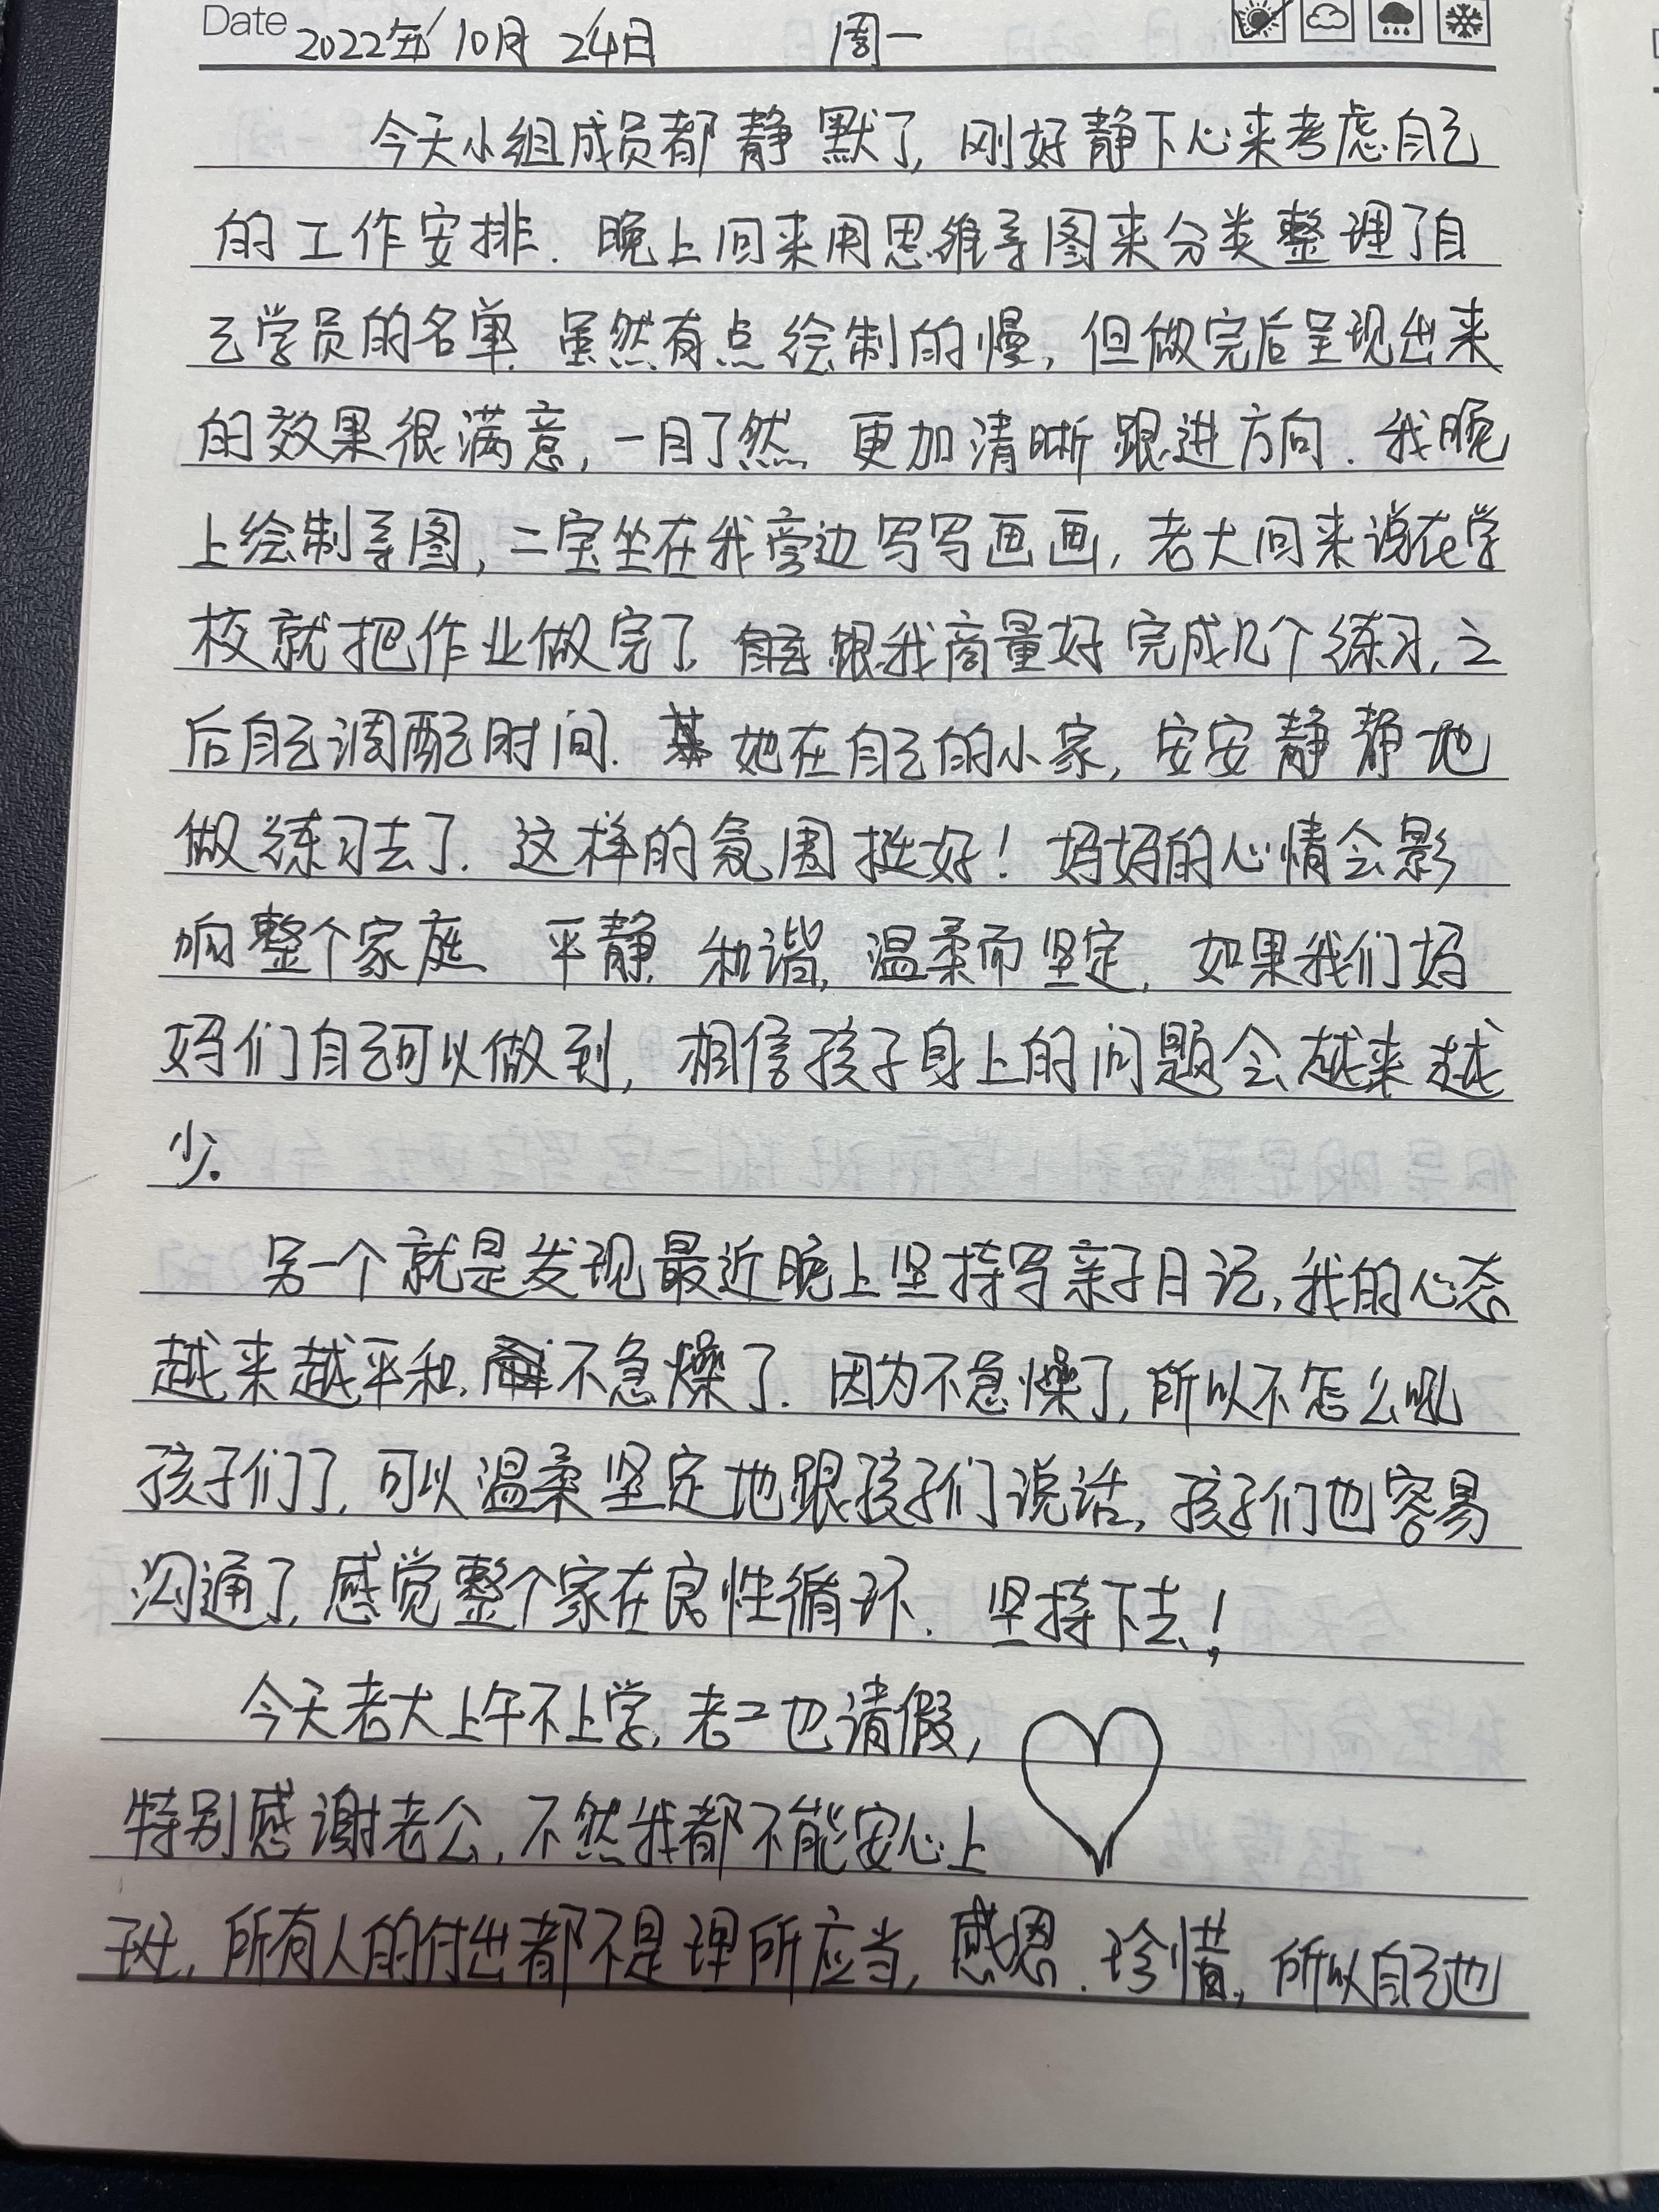 Date 2022年10月24日 周一
今天小组成员都静默了,刚好静下心来考虑自己
的工作安排.晚上回来用思维导图来分类整理了自
己学员的名单.虽然有点绘制的慢,但做完后呈现出来
的效果很满意,一目了然.更加清晰跟进方向.我晚
上绘制导图,二宝坐在我旁边写写画画,老大回来说在学
校就把作业做完了.跟我商量好完成几个练习,之
后自己调配时间.她在自己的小家,安安静静地
做练习去了.这样的氛围挺好!妈妈的心情会影
响整个家庭.平静.和谐,温柔而坚定,如果我们妈
妈们自己可以做到,相信孩子身上的问题会越来越
少.
另一个就是发现最近晚上坚持写亲子日记,我的心态
越来越平和,不急燥了.因为不急燥了,所以不怎么吼
孩子们了,可以温柔坚定地跟孩子们说话,孩子们也容易
沟通了,感觉整个家在良性循环.坚持下去!
今天老大上午不上学,老二也请假,
特别感谢老公,不然我都不能安心上
班,所有人的付出都不是理所应当,感恩.珍惜,所以自己也